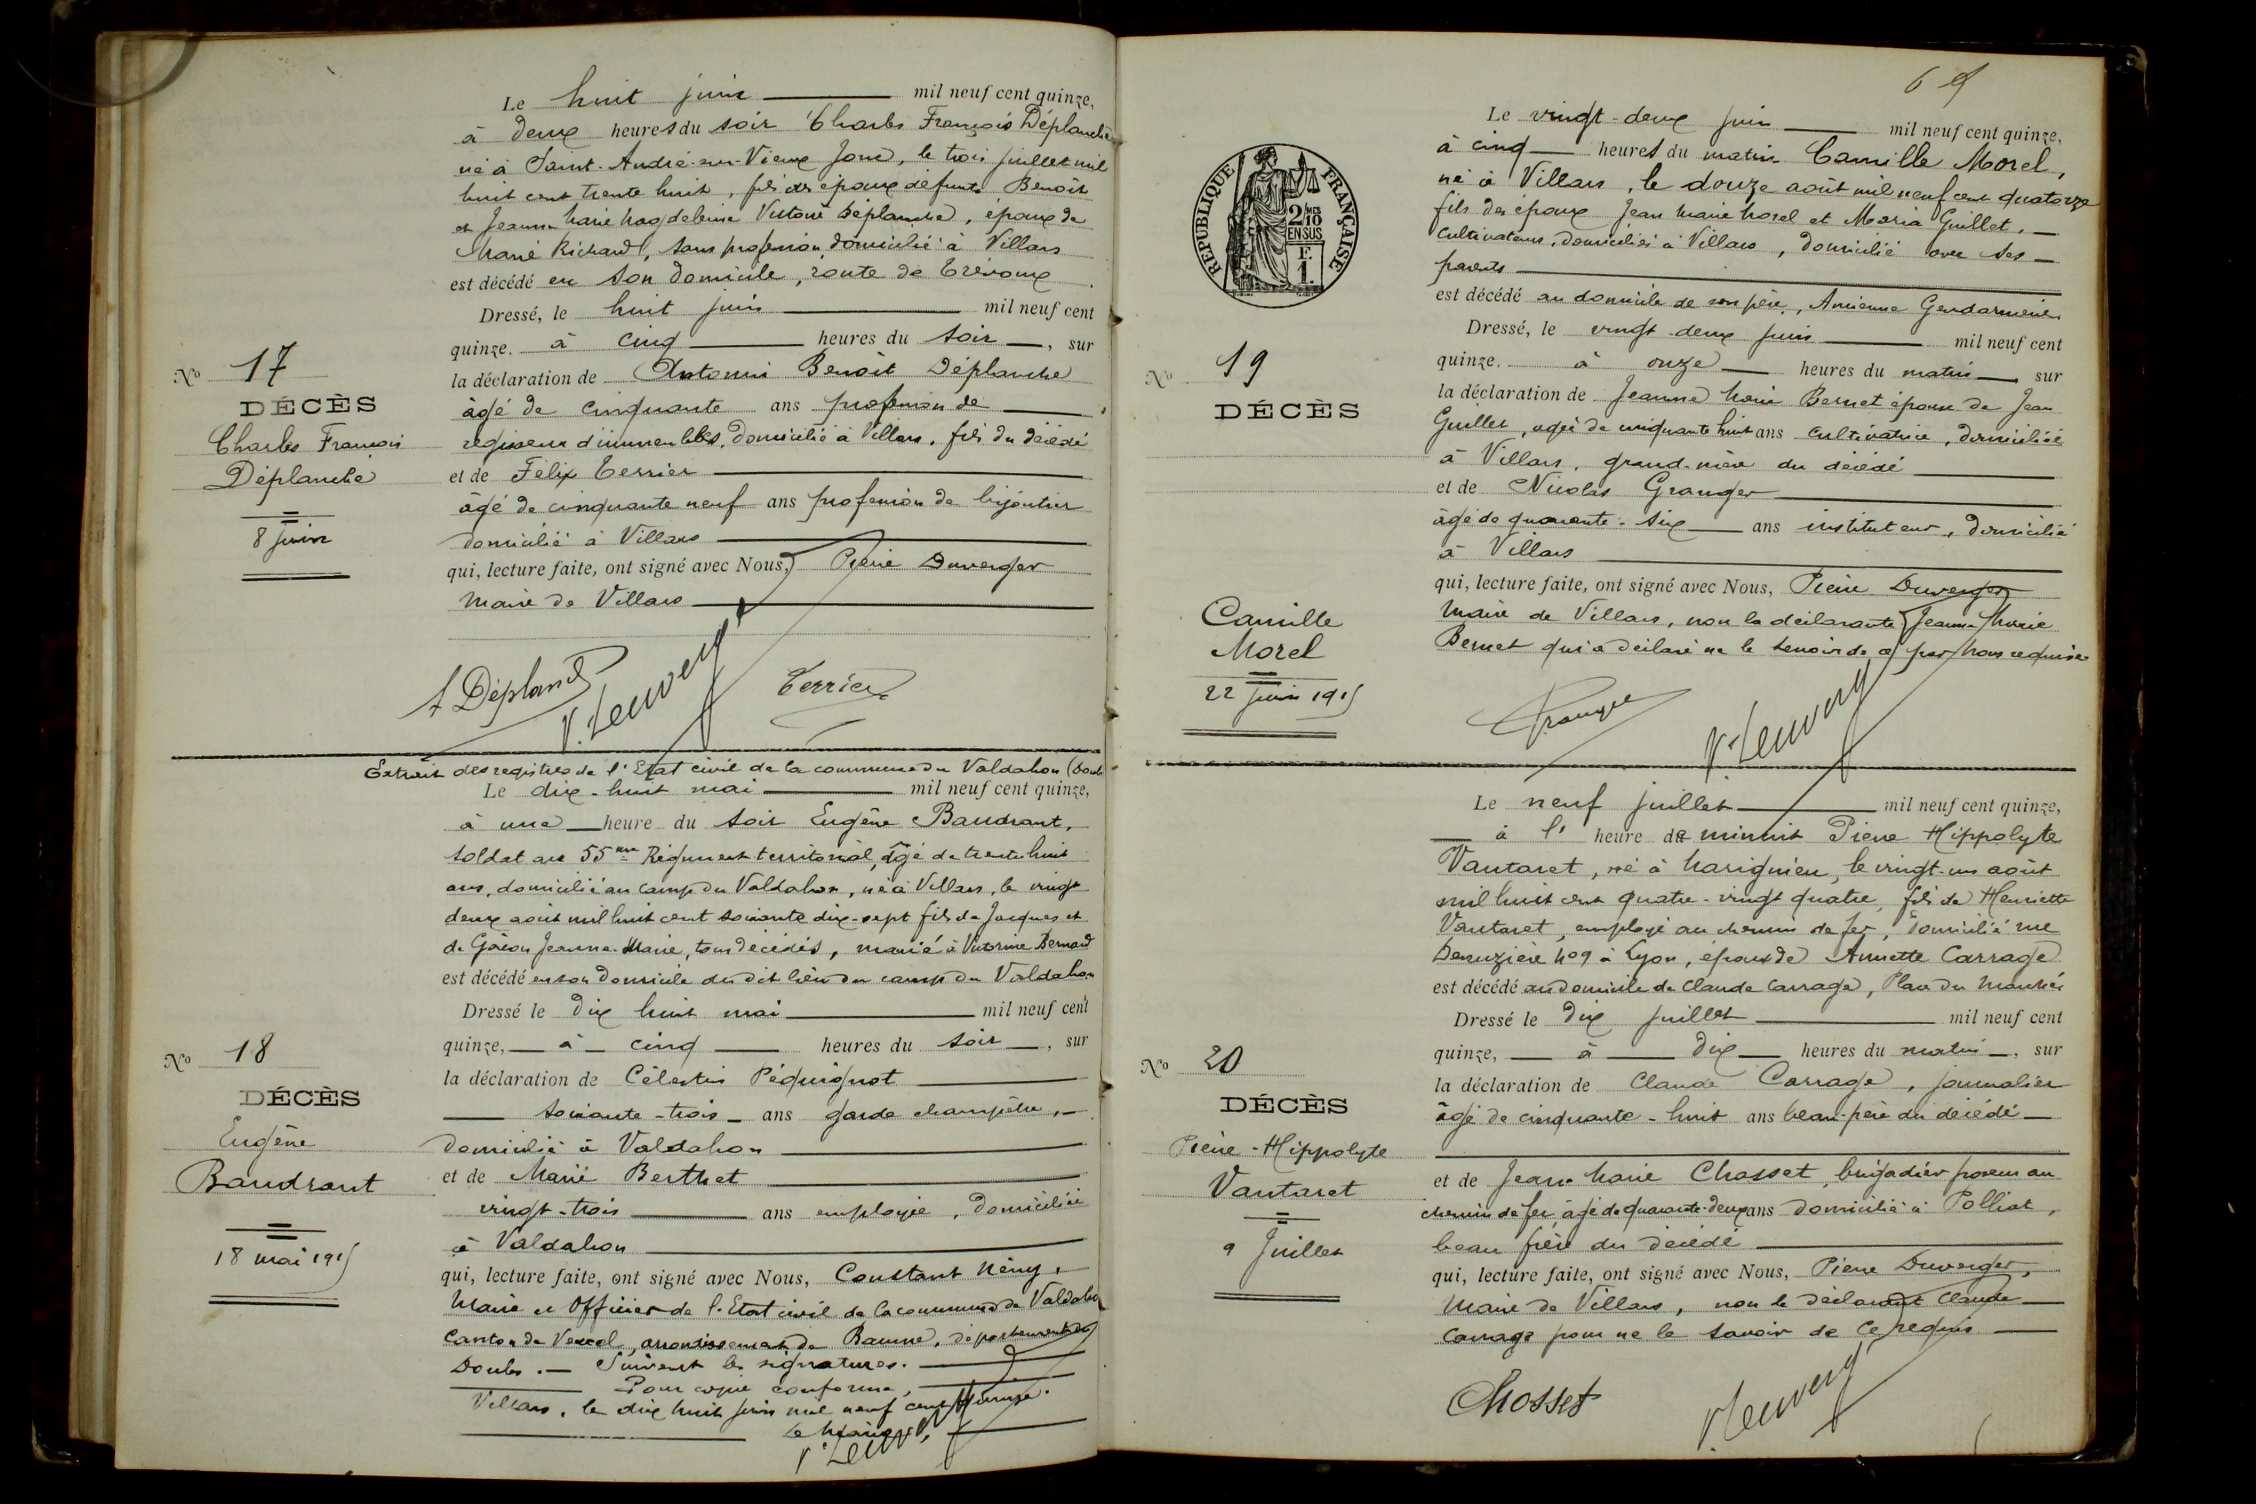 Le huit juin mil neuf cent quinze,
à deux heures du soir Charles François Déplanche
né à Saint-André-sur-Vieux Jonc, le trois juillet mil
huit cent trente huit, fils des époux défunts Benoît
et Jeanne Marie Magdeleine Victoire Déplanche, époux de
Marie Richard, sans profession, domicilié à Villars
est décédé en son domicile, route de Trévoux
Dressé, le huit juin mil neuf cent
quinze. à cinq heures du soir, sur
la déclaration de Antonin Benoît Déplanche
âgé de cinquante ans profession de
régisseur d'immeubles, domicilié à Villars, fils du décédé
et de Félix Terrier
âgé de cinquante neuf ans profession de bijoutier
domicilié à Villars
qui, lecture faite, ont signé avec Nous, Pierre Duverger
Maire de Villars
No 17
DÉCÈS
Charles François
Déplanche
8 juin
A Déplanche
Terrier
Extrait des registres de l'Etat civil de la commune du Valdahon (Doubs
Le dix-huit mai mil neuf cent quinze,
à une heure du soir Eugène Baudrant,
soldat au 55me Régiment territorial, âgé de trente huit
ans, domicilié au camp du Valdahon, né à Villars, le vingt
deux août mil huit cent soixante dix-sept fils de Jacques et
de Jeanne-Marie, tous décédés, marié à Victorine Bernard
est décédé en son domicile du dit lieu du camp du Valdahon
Dressé le dix huit mai mil neuf cent
quinze, à cinq heures du soir, sur
la déclaration de Célestin Péquignot
soixante-trois ans garde champêtre,
domicilié à Valdahon
et de Marie Berthet
vingt-trois ans employée, domiciliée
à Valdahon
qui, lecture faite, ont signé avec Nous, Constant
Maire et Officier de l'Etat civil de la commune de Valdahon
Canton de Vercel, arrondissement de Baume, département du
Doubs. Suivent les signatures.
Pour copie conforme,
Villars, le dix huit juin mil neuf cent quinze.
Le Maire,
No 18
DÉCÈS
Eugène
Baudrant
18 mai 1915
69
RÉPUBLIQUE FRANÇAISE
2/10 MES
EN SUS
F.
1.
Le vingt-deux juin mil neuf cent quinze,
à cinq heures du matin Camille Morel,
né à Villars, le douze août mil neuf cent quatorze
fils des époux Jean Marie Morel et Maria Guillet,
cultivateurs, domiciliés à Villars, domicilié avec ses
parents
est décédé au domicile de son père, Ancienne Gendarmerie
Dressé, le vingt-deux juin mil neuf cent
quinze. à onze heures du matin, sur
la déclaration de Jeanne Marie Bernet épouse de Jean
Guillet, agée de cinquante huit ans cultivatrice, domiciliée
à Villars, grand-mère du décédé
et de Nicolas Granger
âgé de quarante-six ans instituteur, domicilié
à Villars
qui, lecture faite, ont signé avec Nous, Pierre Duverger
Maire de Villars, non la déclarante Jeanne Marie
Bernet qui a déclaré ne le savoir de ce par Nous requise
No 19
DÉCÈS
Camille
Morel
22 juin 1915
Granger
Le neuf juillet mil neuf cent quinze,
à l' heure de minuit Pierre Hippolyte
Vautaret, né à Marignieu, le vingt-un août
mil huit cent quatre-vingt quatre, fils de Henriette
Vautaret, employé au chemin de fer, domicilié rue
No 9 à Lyon, époux de Annette Carrage
est décédé au domicile de Claude Carrage, Place du Marché
Dressé le dix juillet mil neuf cent
quinze, à dix heures du matin, sur
la déclaration de Claude Carrage, journalier
âgé de cinquante-huit ans beau-père du décédé
et de Jean Marie Chosset, brigadier poseur au
chemin de fer, âgé de quarante-deux ans domicilié à Polliat,
beau frère du décédé
qui, lecture faite, ont signé avec Nous, Pierre Duverger,
Maire de Villars, non le déclarant Claude
Carrage pour ne le savoir de ce requis
No 20
DÉCÈS
Pierre-Hippolyte
Vautaret
9 Juillet
Chosset